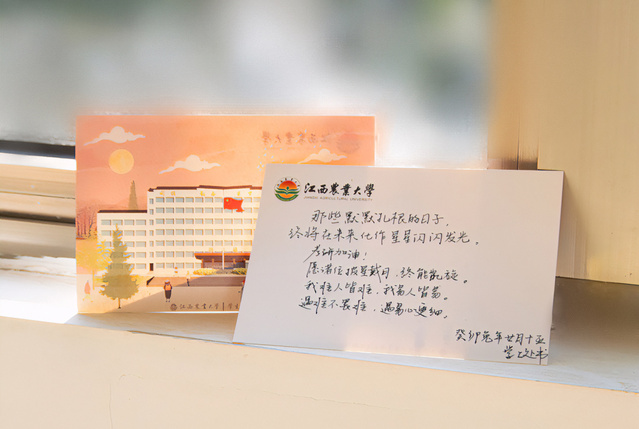 江西农业大学
江西農業大學
JIANGXI AGRICULTURAL UNIVERSITY
那些默默扎根的日子，
终将在未来化作星星闪闪发光。
考研加油！
愿诸位披星戴月，终能凯旋。
我难人皆难，我易人皆易。
遇难不畏难，遇易心更细。
癸卯兔年廿月十五
学工处书
江西農業大學